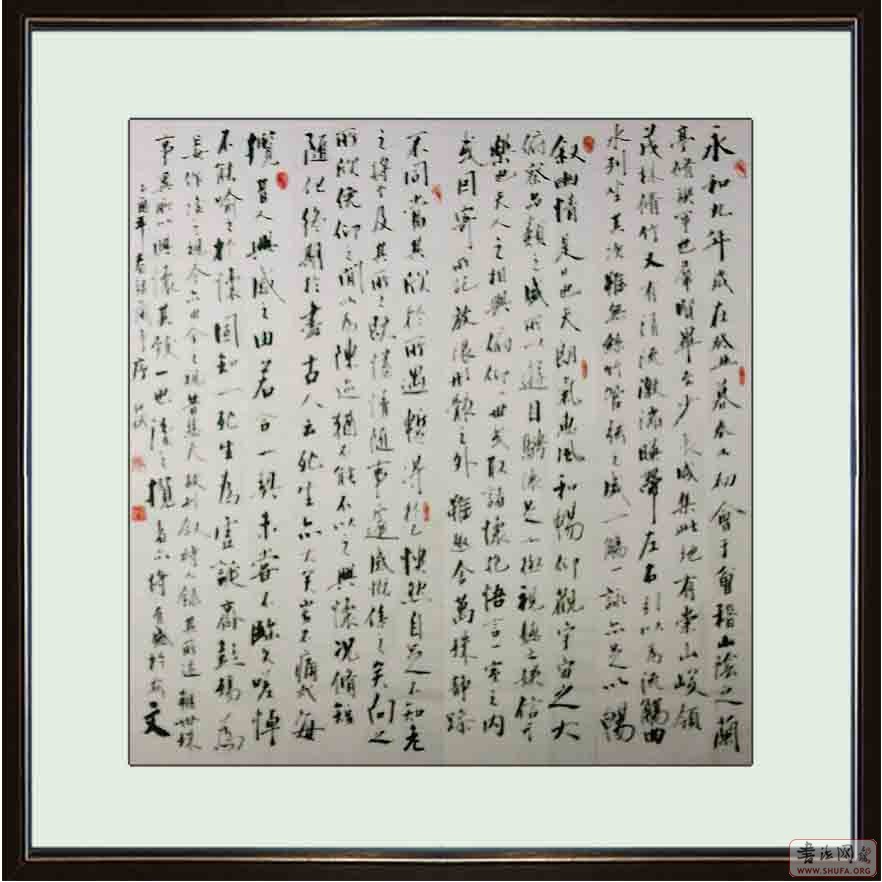 永和九年歲在癸丑暮春之初會于會稽山陰之蘭
亭脩禊事也羣賢畢至少長咸集此地有崇山峻領
茂林脩竹又有清流激湍暎帶左右引以為流觴曲
水列坐其次雖無絲竹管弦之盛一觴一詠亦足以暢
叙幽情是日也天朗氣惠風和暢仰觀宇宙之大
俯察品類之盛所以遊目騁懷足以極視聽之娛信可
樂也夫人之相與俯仰一世或取諸懷抱悟言一室之內
或因寄所託放浪形骸之外雖趣舍萬殊静躁
不同當其欣於所遇暫得於己怏然自足不知老
之將至及其所之既惓情隨事遷感慨係之矣向之
所欣俛仰之間以為陳迹猶不能不以之興懷況脩短
隨化終期於盡古人云死生亦大矣豈不痛哉每
攬昔人興感之由若合一契未嘗不臨文嗟悼
不能喻之於懷固知一死生為虛誕齊彭殤為
妄作後之視今亦由今之視昔悲夫故列叙時人錄其所述雖世殊
事異所以興懷其致一也後之攬者亦將有感於斯文
乙酉年春
書法网
WWW.SHUFA.ORG